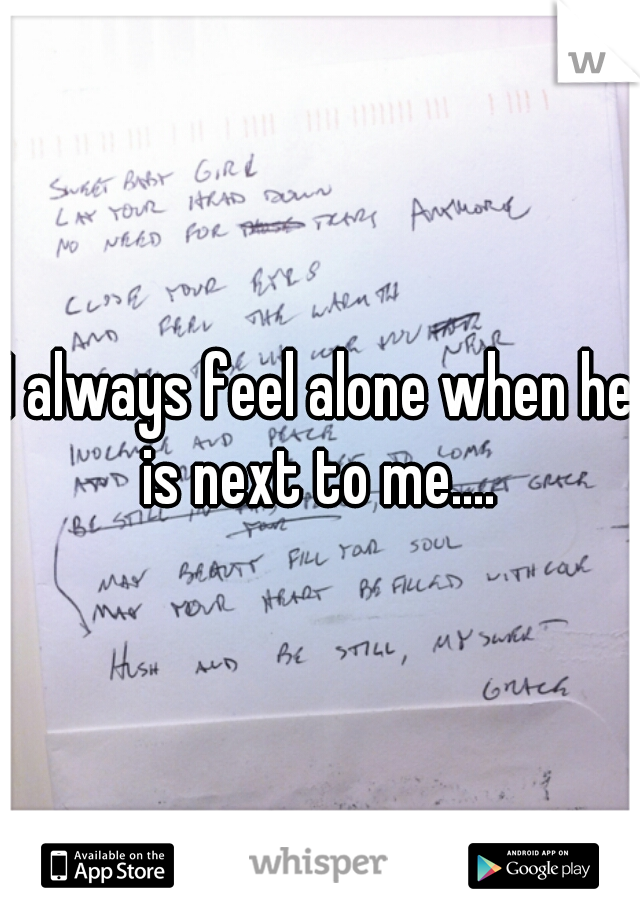 w
SWEET BABY GIRL
LAY YOUR HEAD DOWN
NO NEED FOR TEARS ANYMORE
CLOSE YOUR EYES
AND FEEL THE WARMTH
NEAR
I always feel alone when he
AND PEACE
is next to me....
TO COME
BE STILL GRACE
YOUR
MAY BEAUTY FILL YOUR SOUL
MAY YOUR HEART BE FILLED WITH LOVE
HUSH AND BE STILL, MY SWEET
GRACE
Available on the
App Store
whisper
ANDROID APP ON
Google play